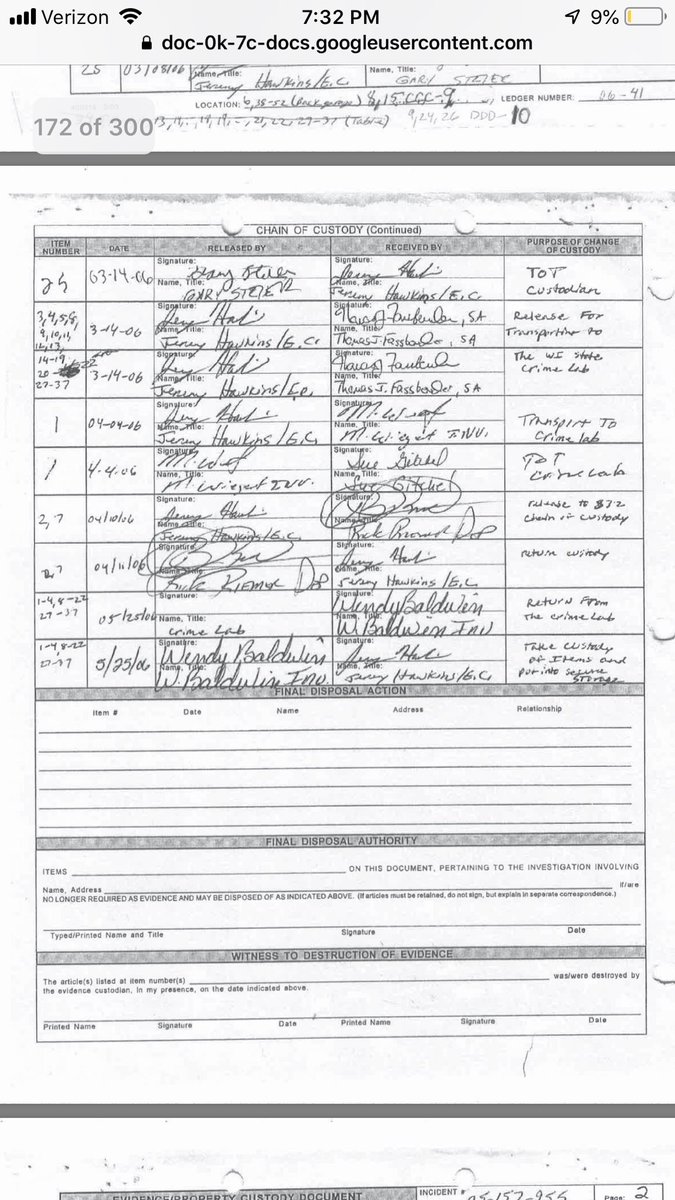 Verizon 7:32 PM 9%
doc-0k-7c-docs.googleusercontent.com
25 03/08/06 Name, Title: Jeremy Hawkins/E.C. Name, Title: GARY STEIER
LOCATION: LEDGER NUMBER: 06-41
172 of 300
13, 14, (Table) 9,24,26 DDD-10
CHAIN OF CUSTODY (Continued)
ITEM NUMBER DATE RELEASED BY RECEIVED BY PURPOSE OF CHANGE OF CUSTODY
25 03-14-06 Signature: Name, Title: GARY STEIER Signature: Name, Title: Jeremy Hawkins/E.C. TOT Custodian
3,4,5,8, 9,10,11, 12,13, 3-14-06 Signature: Name, Title: Jeremy Hawkins/E.C. Signature: , SA Name, Title: Thomas J. Fassbender, SA Release For Transporting to
14-19, 20- 22 27-37 3-14-06 Signature: Name, Title: Jeremy Hawkins/E.C. Signature: Name, Title: Thomas J. Fassbender, SA The WI State Crime Lab
1 04-04-06 Signature: Name, Title: Jeremy Hawkins/E.C. Signature: Name, Title: M. Wiegert INV. Transport To Crime lab
1 4-4-06 Signature: Name, Title: M. Wiegert INV. Signature: Sue Gitchel Name, Title: Sue Gitchel TOT Crime Lab
2,7 04/10/06 Signature: Name, Title: Jeremy Hawkins/E.C. Signature: Name, Title: release to chain of custody
2,7 04/11/06 Signature: Name, Title: Signature: Name, Title: Jeremy Hawkins/E.C. return custody
1-4, 8-22 27-37 05/25/06 Signature: Name, Title: Crime Lab Signature: Wendy Baldwin Name, Title: W. Baldwin Inv Return From The crime Lab
1-4, 8-22 27-37 5/25/06 Signature: Wendy Baldwin Name, Title: W. Baldwin Inv. Signature: Name, Title: Jeremy Hawkins/E.C. Take Custody of Items and put into secure storage
FINAL DISPOSAL ACTION
Item # Date Name Address Relationship
FINAL DISPOSAL AUTHORITY
ITEMS ON THIS DOCUMENT, PERTAINING TO THE INVESTIGATION INVOLVING
Name, Address If/are
NO LONGER REQUIRED AS EVIDENCE AND MAY BE DISPOSED OF AS INDICATED ABOVE. (If articles must be retained, do not sign, but explain in separate correspondence.)
Typed/Printed Name and Title Signature Date
WITNESS TO DESTRUCTION OF EVIDENCE
The article(s) listed at item number(s) was/were destroyed by
the evidence custodian, in my presence, on the date indicated above.
Printed Name Signature Date Printed Name Signature Date
EVIDENCE/PROPERTY CUSTODY DOCUMENT INCIDENT # 05-157-955 Page: 2